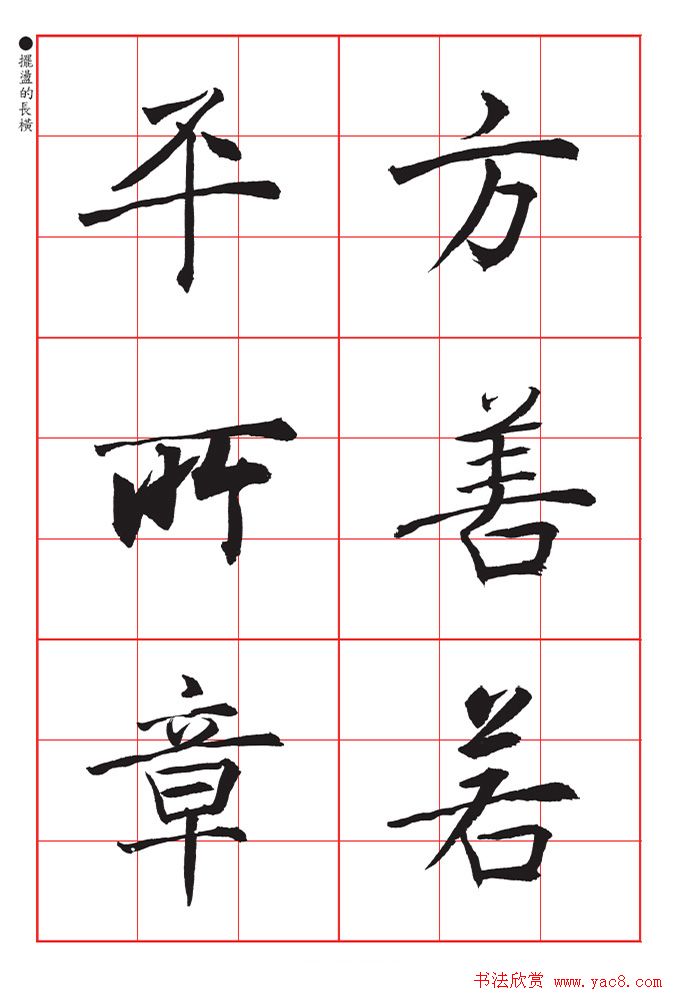 ●擺盪的長橫
方
善
若
平
所
章
书法欣赏 www.yac8.com